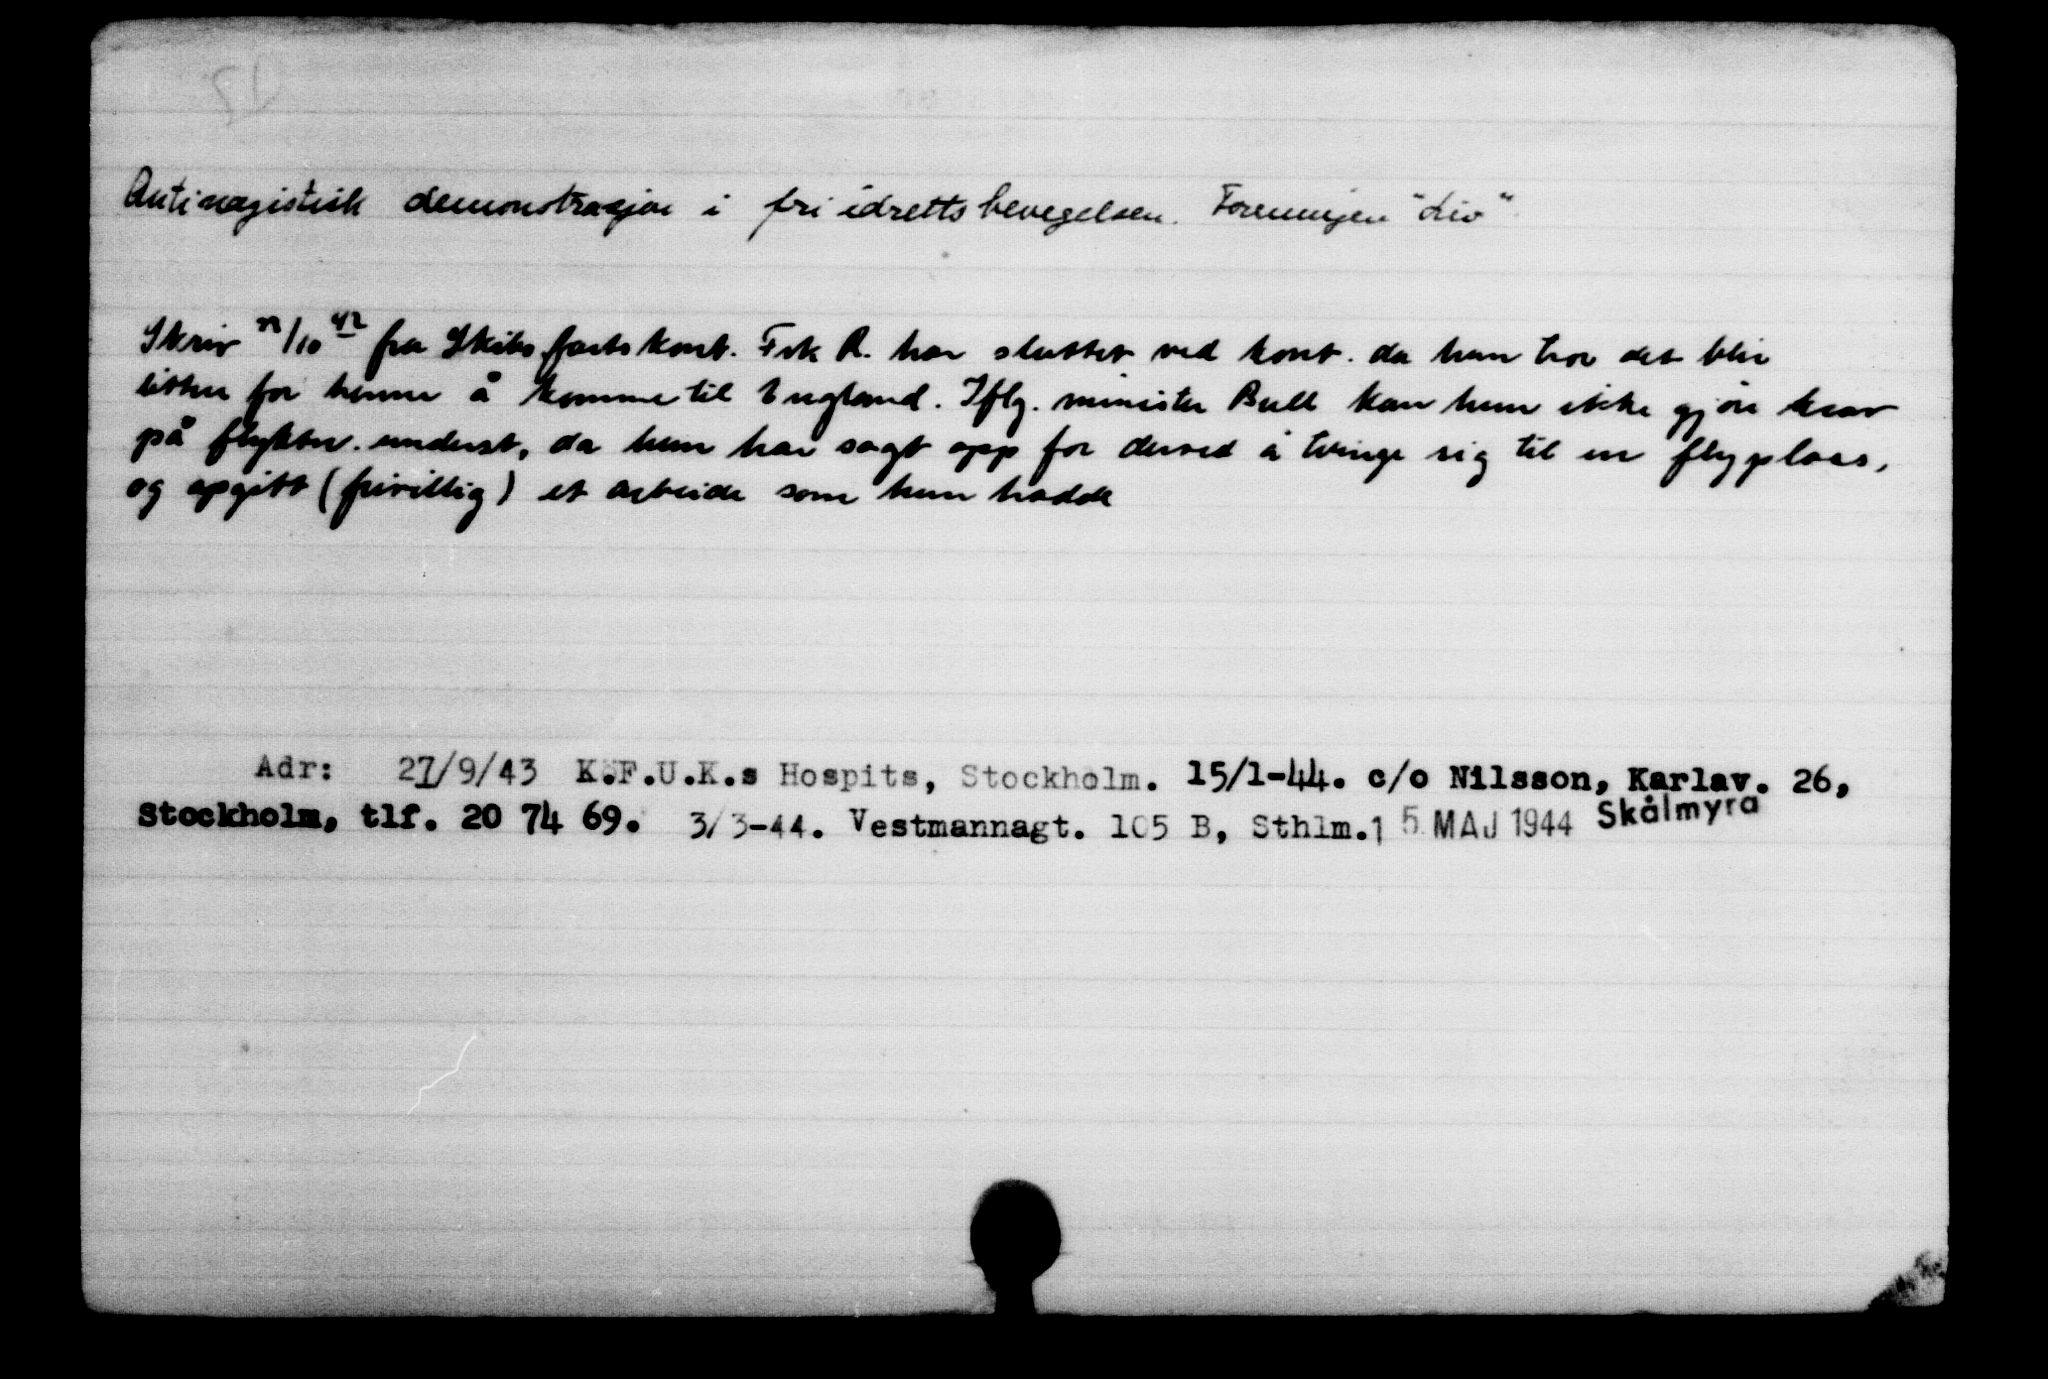 Antinazistisk demonstrasjon i fri idrettsbevegelsen. Foreningen "Liv"
Skriv /10 42 fra Skibsfartskont. Frk R. har sluttet ved kont. da hun tror det blir
lettere for henne å komme til England. Iflg. minister Bull kan hun ikke gjöre krav
på flyktn. underst, da hun har sagt opp for derved å tvinge sig til en flyplass,
og opgitt (frivillig) et arbeide som hun hadde
Adr: 27/9/43 K.F.U.K.s Hospits, Stockholm. 15/1-44. c/o Nilsson, Karlav. 26,
Stockholm, tlf. 20 74 69. 3/3-44. Vestmannagt. 105 B, Sthlm. 15 MAJ 1944 Skålmyra